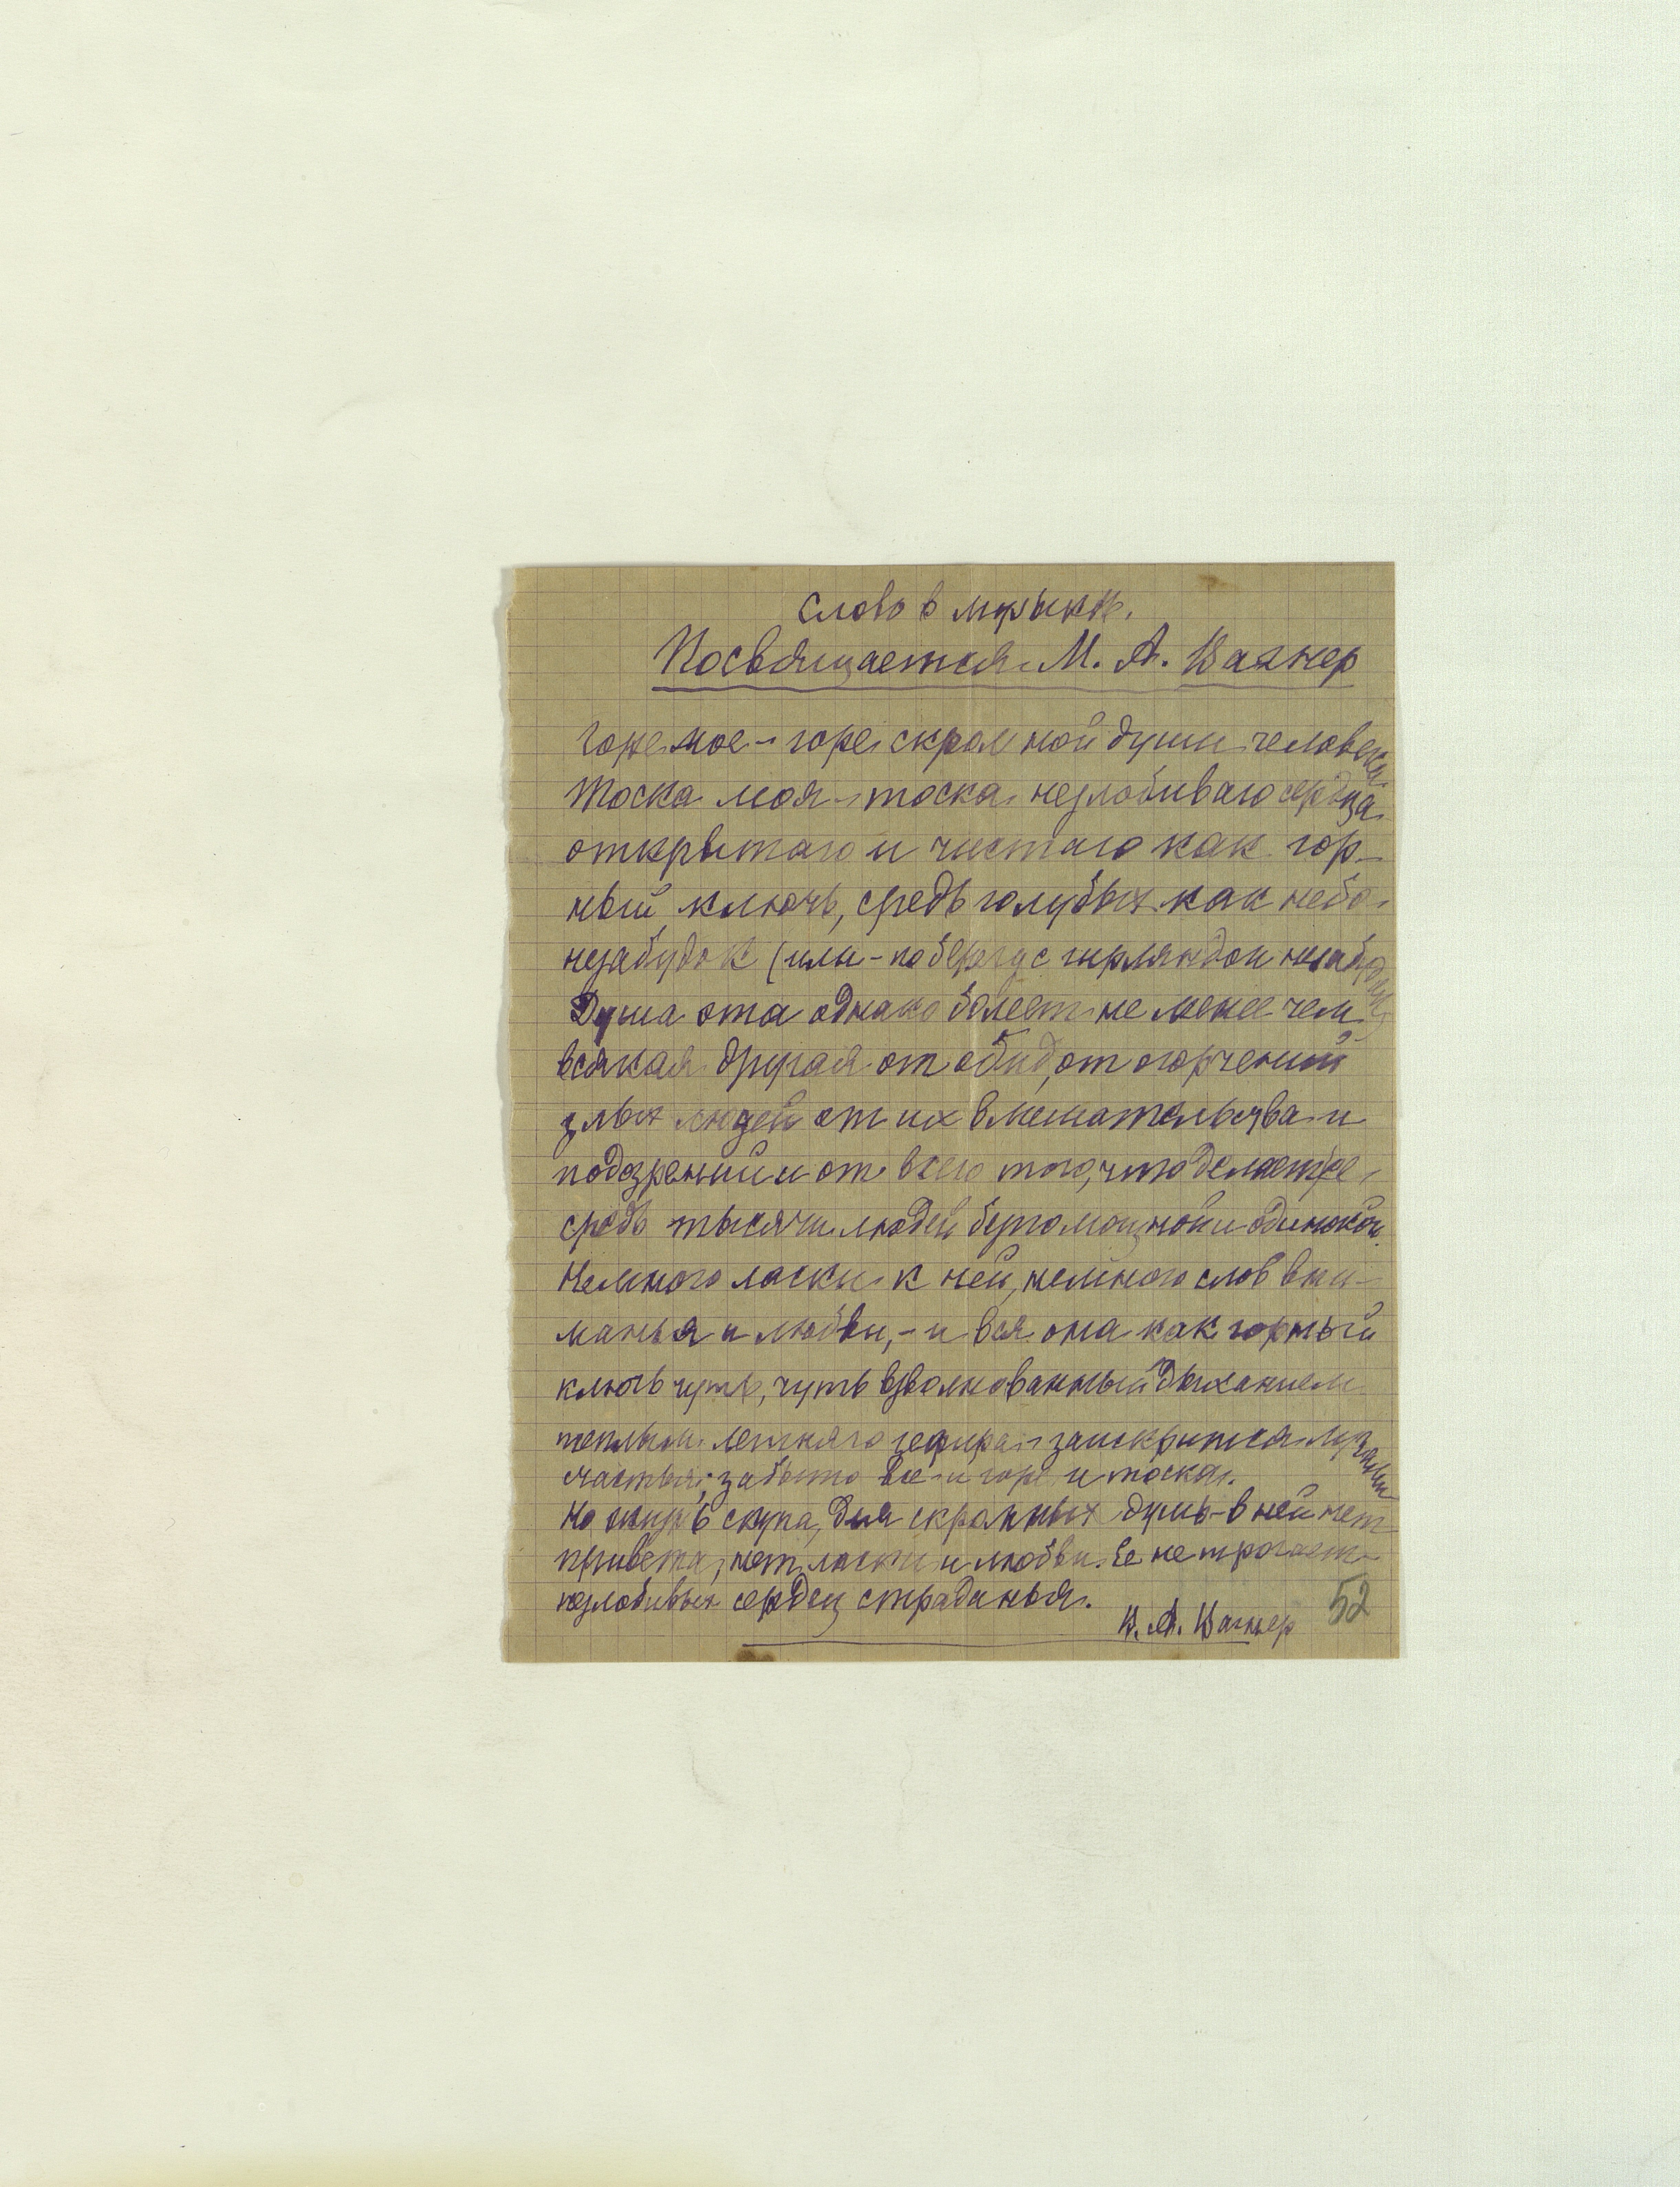 Слово в музыкѣ.
Посвящается М. А. Вагнер
Горе мое – горе скромной души человека
Тоска моя – тоска незлобиваго сердца
открытаго и чистаго как гор-
ный ключь, средь голубых как небо
незабудок (или – по берегу с гирляндой незабудок)
Душа эта однако болеет не менее чем
всякая другая от обид, от огорчений
злых людей от их вмешательства и
подозрений и от всего того, что делает ее
средь тысячи людей беспомощной и одинокой.
Немного ласки к ней, немного слов вни-
манья и любви, – и вся она как горный
ключь чуть, чуть взволнованный дыханием
теплым летняго зефира – заискрится лучами
счастья; забыто все – и горе и тоска.
Но жизнь скупа, для скромных душ – в ней нет
привета, нет ласки и любви. Ее не трогает
незлобивых сердец страданья.
В. А. Вагнер
52